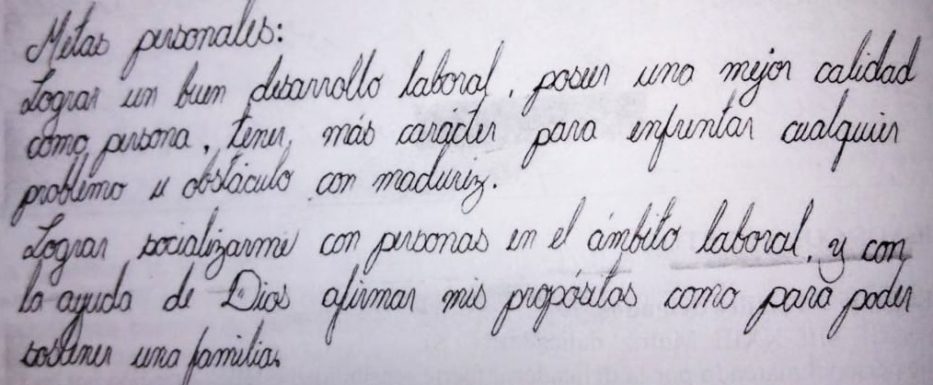 Metas personales:
Lograr un buen desarrollo laboral, poseer una mejor calidad
como persona, tener, más carácter para enfrentar cualquier
problema u obstáculo con madurez.
Lograr socializarme con personas en el ámbito laboral, y con
la ayuda de Dios afirmar mis propósitos como para poder
sostener una familia.